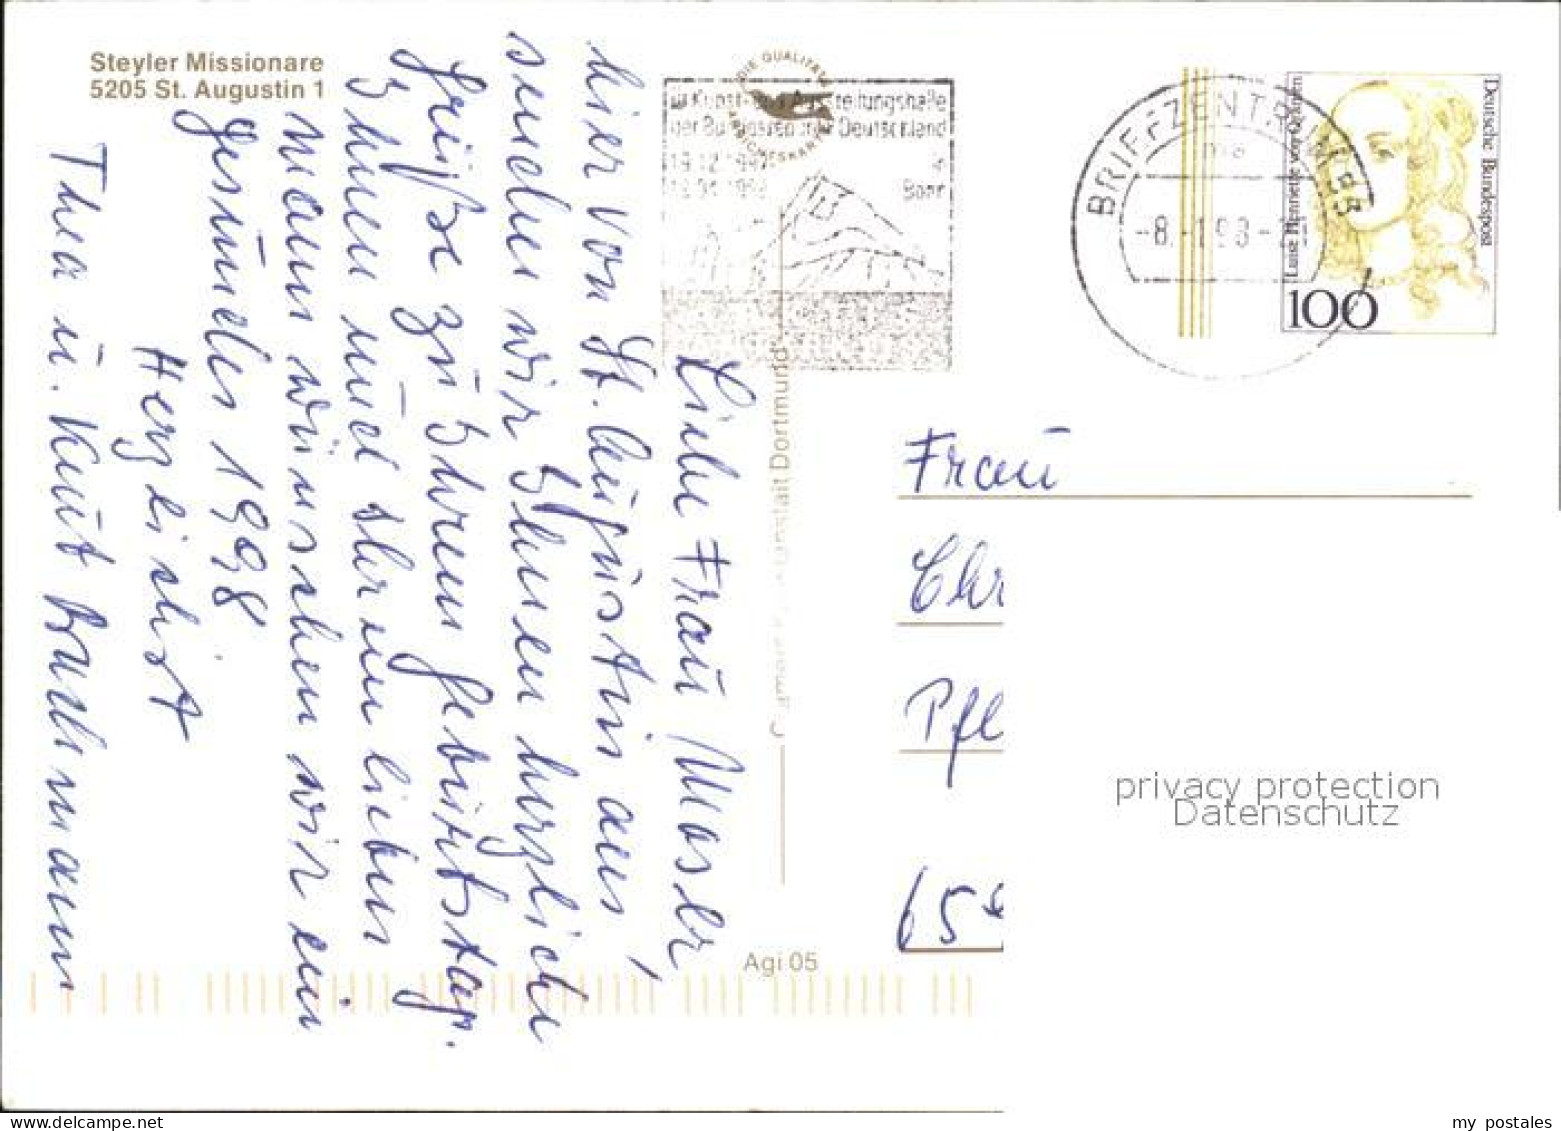 Steyler Missionare
5205 St. Augustin 1
Liebe Frau Moser,
hier von St. Augustin aus,
senden wir Ihnen herzliche
Grüße zu Ihrem Geburtstag.
Ihnen und Ihrem lieben
Mann wünschen wir ein
gesundes 1998
Herzlichst
Thea u. Knut Bachmann
DIE QUALITÄTS
ANSICHTSKARTE
Kunst- und Ausstellungshalle
der Bundesrepublik Deutschland
19.12.1997
Bonn
anstalt Dortmund
Agi 05
BRIEFZENTRUM
-8.-1.98-
Luise Henriette von Oranien
100
Deutsche Bundespost
Frau
Chr
Pfl
65
privacy protection
Datenschutz
my postales